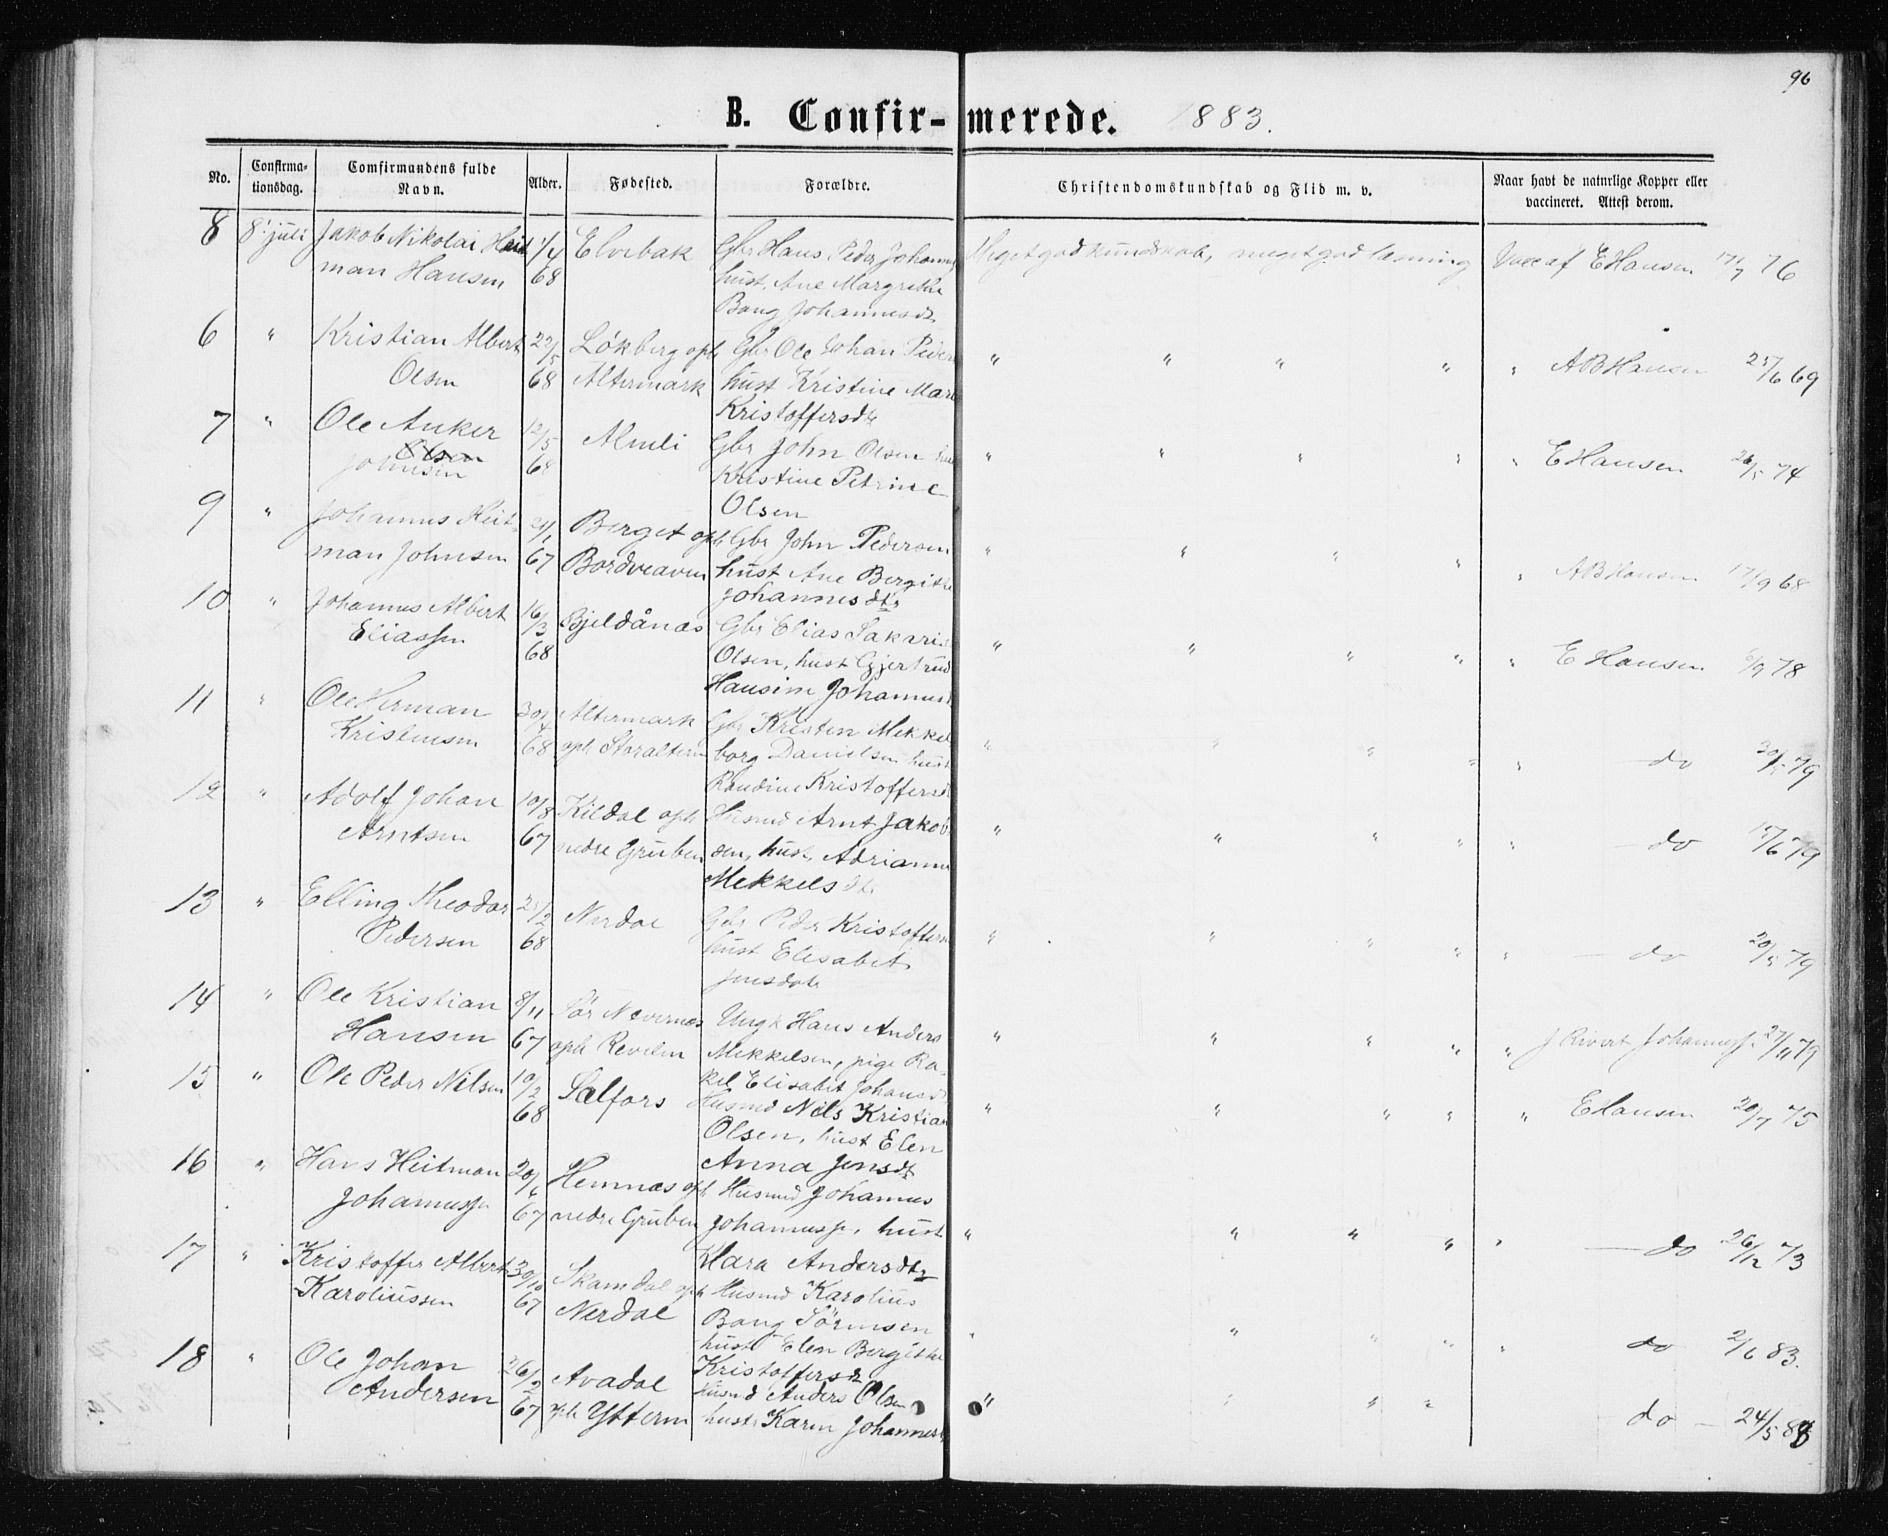 96
B. Confir- merede. 1883.
No. Confirma-tionsdag. Comfirmandens fulde Navn. Alder. Fødested. Forældre. Christendomskundskab og Flid m. v. Naar havt de naturlige Kopper eller vaccineret. Attest derom.
8 8' juli Jakob Nikolai Heit 1/4 Elvebak Gbr Hans Peder Johannes Meget god kundskab, meget god læsning Vacc af E Hansen 17/7 76
man Hansen 68 hust. Ane Margrethe
Bang Johannesdt
6 " Kristian Albert 22/5 Løkberg oph Gbr Ole Johan Peder " " " " " A B Hansen 25/6 69
Olsen 68 Altermark hust Kristine Mar
Kristoffersdtr
7 " Ole Anker 12/5 Almli Gbr John Olsen hust " " " " " E Hansen 26/5 74
Olsen
Johnsen 68 Kristine Petrine
Olsen
9 " Johannes Heit- 24/1 Berget oph Gbr John Pedersen " " " " " A B Hansen 17/9 68
man Johnsen 67 Bordveaven hust Ane Bergitte
Johannesdtr
10 " Johannes Albert 16/3 Bjeldånæs Gbr Elias Sakarias " " " " " E Hansen 6/9 78
Eliassen 68 Olsen, hust Gjertrud
Hansine Johannesdt
11 " Ole Herman 30/ Altermark Gbr Kristen Mekkel " " " " " do 30/5 79
Kristensen 68 oph Storaltern borg Danielsen hust
Randine Kristoffersdt
12 " Adolf Johan 10/8 Kildal oph Husmd Arnt Jakob " " " " " do 15/6 79
Arntsen 67 nedre Gruben sen, hust, Adrianna
Mekkelsdtr
13 " Elling Theodor 25/2 Nerdal Gbr Peder Kristoffersen " " " " " do 20/5 79
Pedersen 68 hust Elisabet
Jensdatr
14 " Ole Kristian 8/11 Sør Nævernes Ungk Hans Anders " " " " " J Rivert Johanness. 27/11 79
Hansen 67 oph Revelen Mekkelsen, pige Ra-
kel Elisabet Johansdt
15 " Ole Peder Nilsen 10/2 Selfors Husmd Nils Kristian " " " " " E Hansen 20/7 75
68 Olsen, hust Elen
Anna Jensdt
16 " Hans Heitman 20/6 Hemnæs oph Husmd Johannes
Johannessen 67 nedre Gruben Johannesse, hust " " " " " do 26/12 73
Klara Andersdtr
17 " Kristoffer Albert 30/10 Skamdal oph Husmd Karolius
Karoliussen 67 Nerdal Bang Sørensen " " " " " do 2/6 83.
hust Elen Bergitte
Kristoffersdtr
18 " Ole Johan 26/2 Avadal Husmd Anders Olsen " " " " do 24/5 88
Andersen 67 oph Ytteren hust Karen Johannesdt